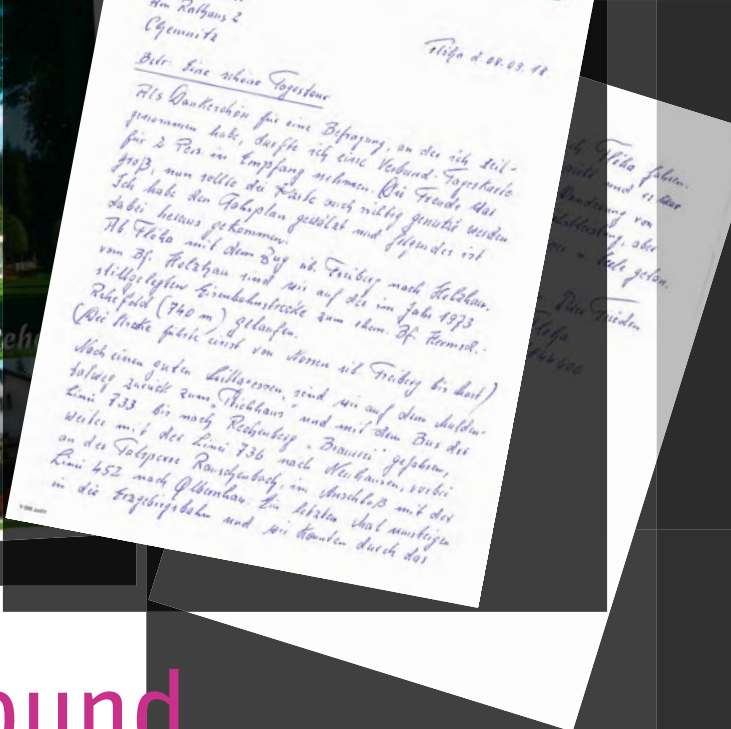 Am Rathaus 2
Chemnitz
Flöha d. 04.03.18
Betr: Eine schöne Tagestour
Als Dankeschön für eine Befragung, an der ich teil-
genommen habe, durfte ich eine Verbund-Tageskarte
für 2 Pers. in Empfang nehmen. Die Freude war
groß, nun sollte die Karte auch richtig genutzt werden
Ich habe den Fahrplan gewälzt und folgendes ist
dabei heraus gekommen.
Ab Flöha mit dem Zug üb. Freiberg nach Holzhau.
vom Bf. Holzhau sind wir auf der im Jahr 1973
stillgelegten Eisenbahnstrecke zum ehem. Bf. Hermsd.-
Rehefeld (740 m) gelaufen.
(Die Strecke führte einst von Nossen üb. Freiberg bis dort)
Nach einem guten Mittagessen, sind wir auf dem Mulden-
talweg zurück zum "Teichhaus" und mit dem Bus der
Linie 733 bis nach Rechenberg "Brauerei" gefahren,
weiter mit der Linie 736 nach Neuhausen, vorbei
an der Talsperre Rauschenbach, im Anschluß mit der
Linie 452 nach Olbernhau. Ein letztes Mal umsteigen
in die Erzgebirgsbahn und wir konnten durch das
Flöha fahren.
und es war
Wanderung von
aber
Seele getan.
Frieden
Flöha
bund